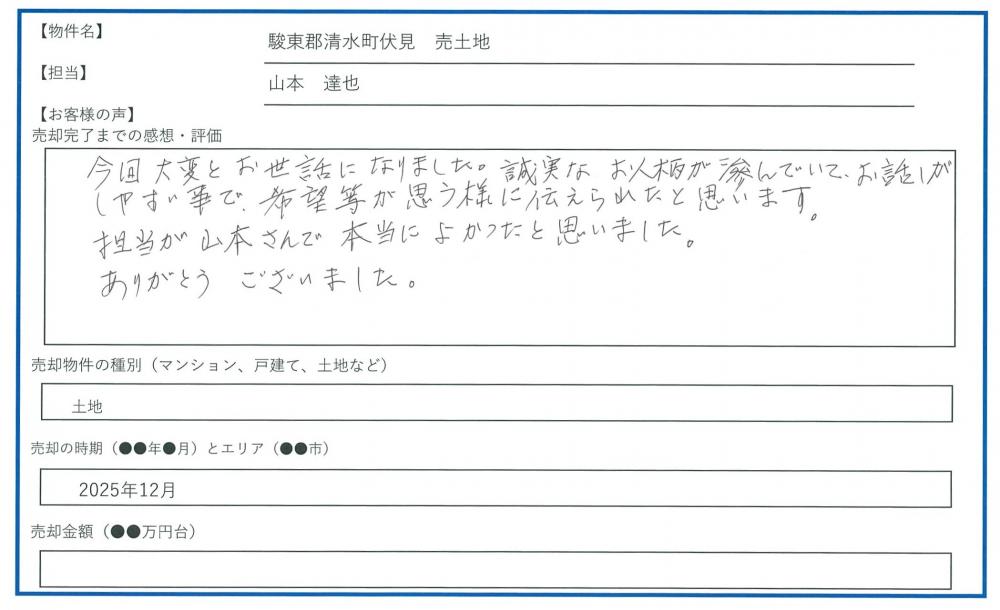 【物件名】
駿東郡清水町伏見　売土地
【担当】
山本　達也
【お客様の声】
売却完了までの感想・評価
今回大変とお世話になりました。誠実なお人柄が滲んでいて、お話しが
しやすい事で、希望等が思う様に伝えられたと思います。
担当が山本さんで本当によかったと思いました。
ありがとうございました。
売却物件の種別（マンション、戸建て、土地など）
土地
売却の時期（●●年●月）とエリア（●●市）
2025年12月
売却金額（●●万円台）